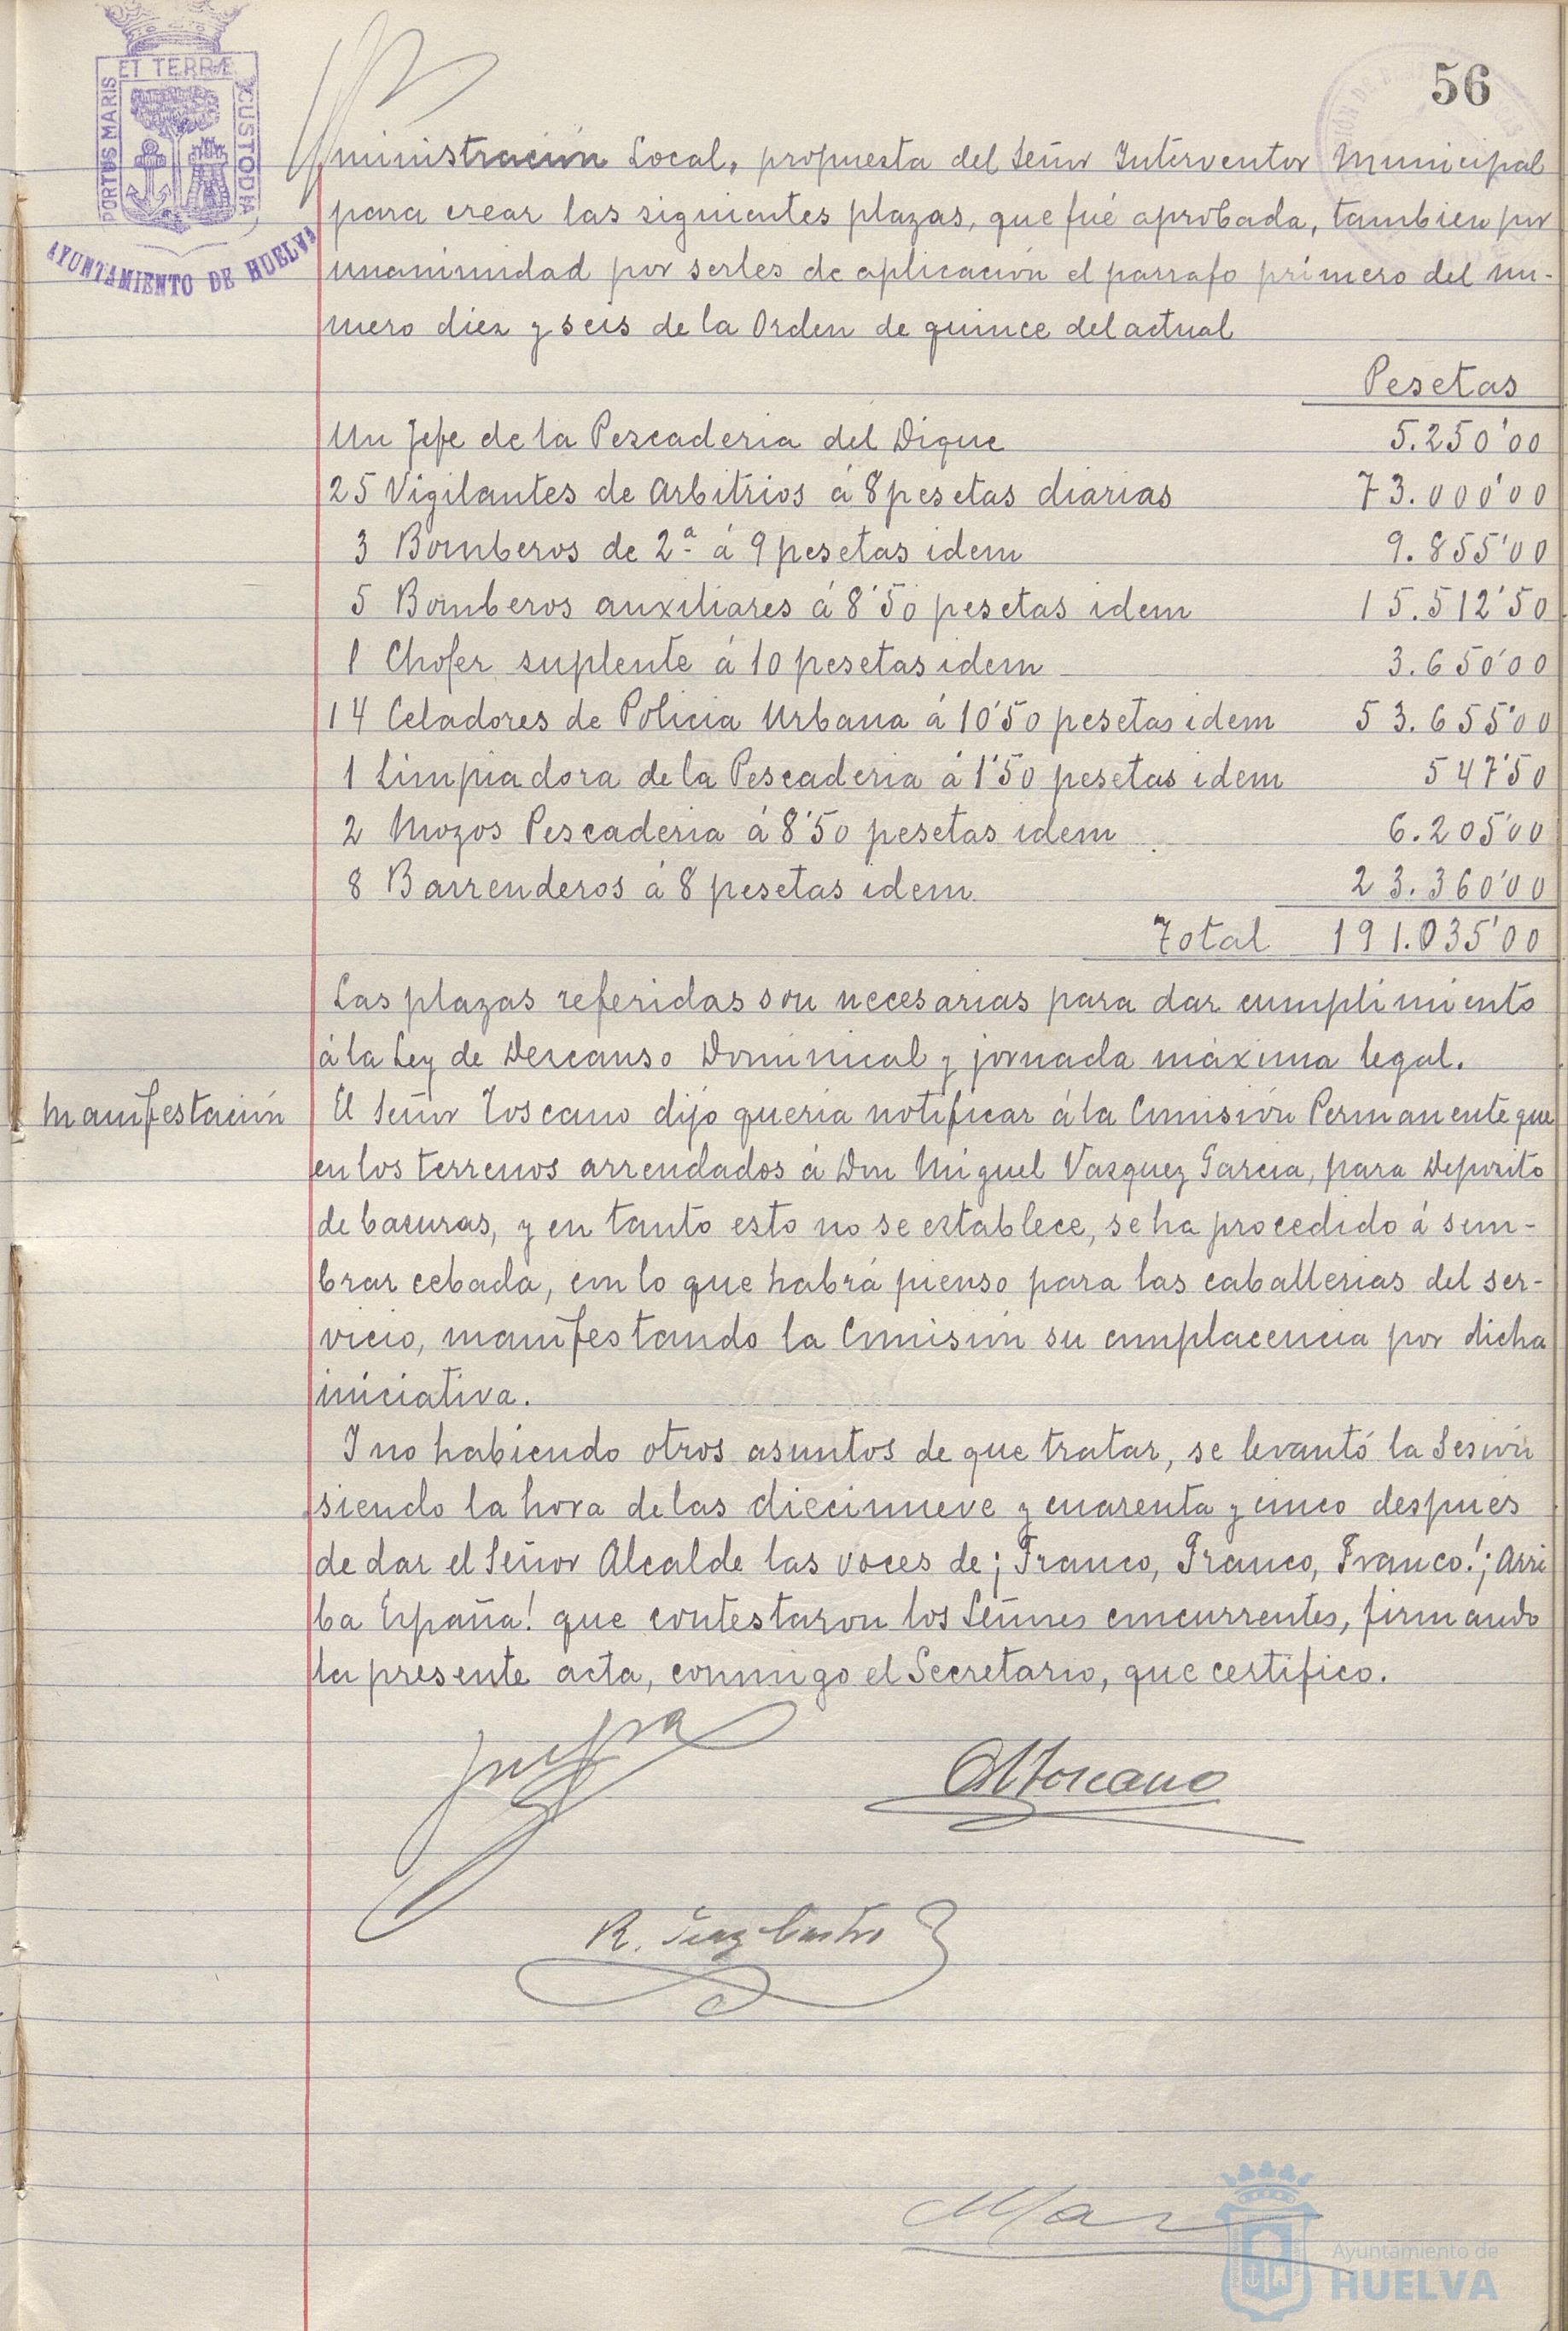 56
PORTUS MARIS ET TERRÆ CUSTODIA
AYUNTAMIENTO DE HUELVA
ministración Local, propuesta del Señor Interventor Municipal
para crear las siguientes plazas, que fué aprobada, tambien por
unanimidad por serles de aplicación el parrafo primero del nu-
mero diez y seis de la Orden de quince del actual
Pesetas
Un Jefe de la Pescaderia del Dique 5.250'00
25 Vigilantes de Arbitrios á 8 pesetas diarias 73.000'00
3 Bomberos de 2ª á 9 pesetas idem 9.855'00
5 Bomberos auxiliares á 8'50 pesetas idem 15.512'50
1 Chofer suplente á 10 pesetas idem 3.650'00
14 Celadores de Policia Urbana á 10'50 pesetas idem 53.655'00
1 Limpiadora de la Pescaderia á 1'50 pesetas idem 547'50
2 Mozos Pescaderia á 8'50 pesetas idem 6.205'00
8 Barrenderos á 8 pesetas idem 23.360'00
Total 191.035'00
Las plazas referidas son necesarias para dar cumplimiento
á la Ley de Descanso Dominical y jornada máxima legal.
Manifestación
El Señor Toscano dijo queria notificar á la Comisión Permanente que
en los terrenos arrendados á Don Miguel Vazquez Garcia, para Deposito
de basuras, y en tanto esto no se establece, se ha procedido á sem-
brar cebada, con lo que habrá pienso para las caballerias del ser-
vicio, manifestando la Comisión su complacencia por dicha
iniciativa.
Y no habiendo otros asuntos de que tratar, se levantó la Sesión
siendo la hora de las diecinueve y cuarenta y cinco después
de dar el Señor Alcalde las voces de ¡Franco, Franco, Franco! ¡Arri
ba España! que contestaron los Señores concurrentes, firmando
la presente acta, conmigo el Secretario, que certifico.
Toscano
R. Diaz Castro
Ayuntamiento de
HUELVA